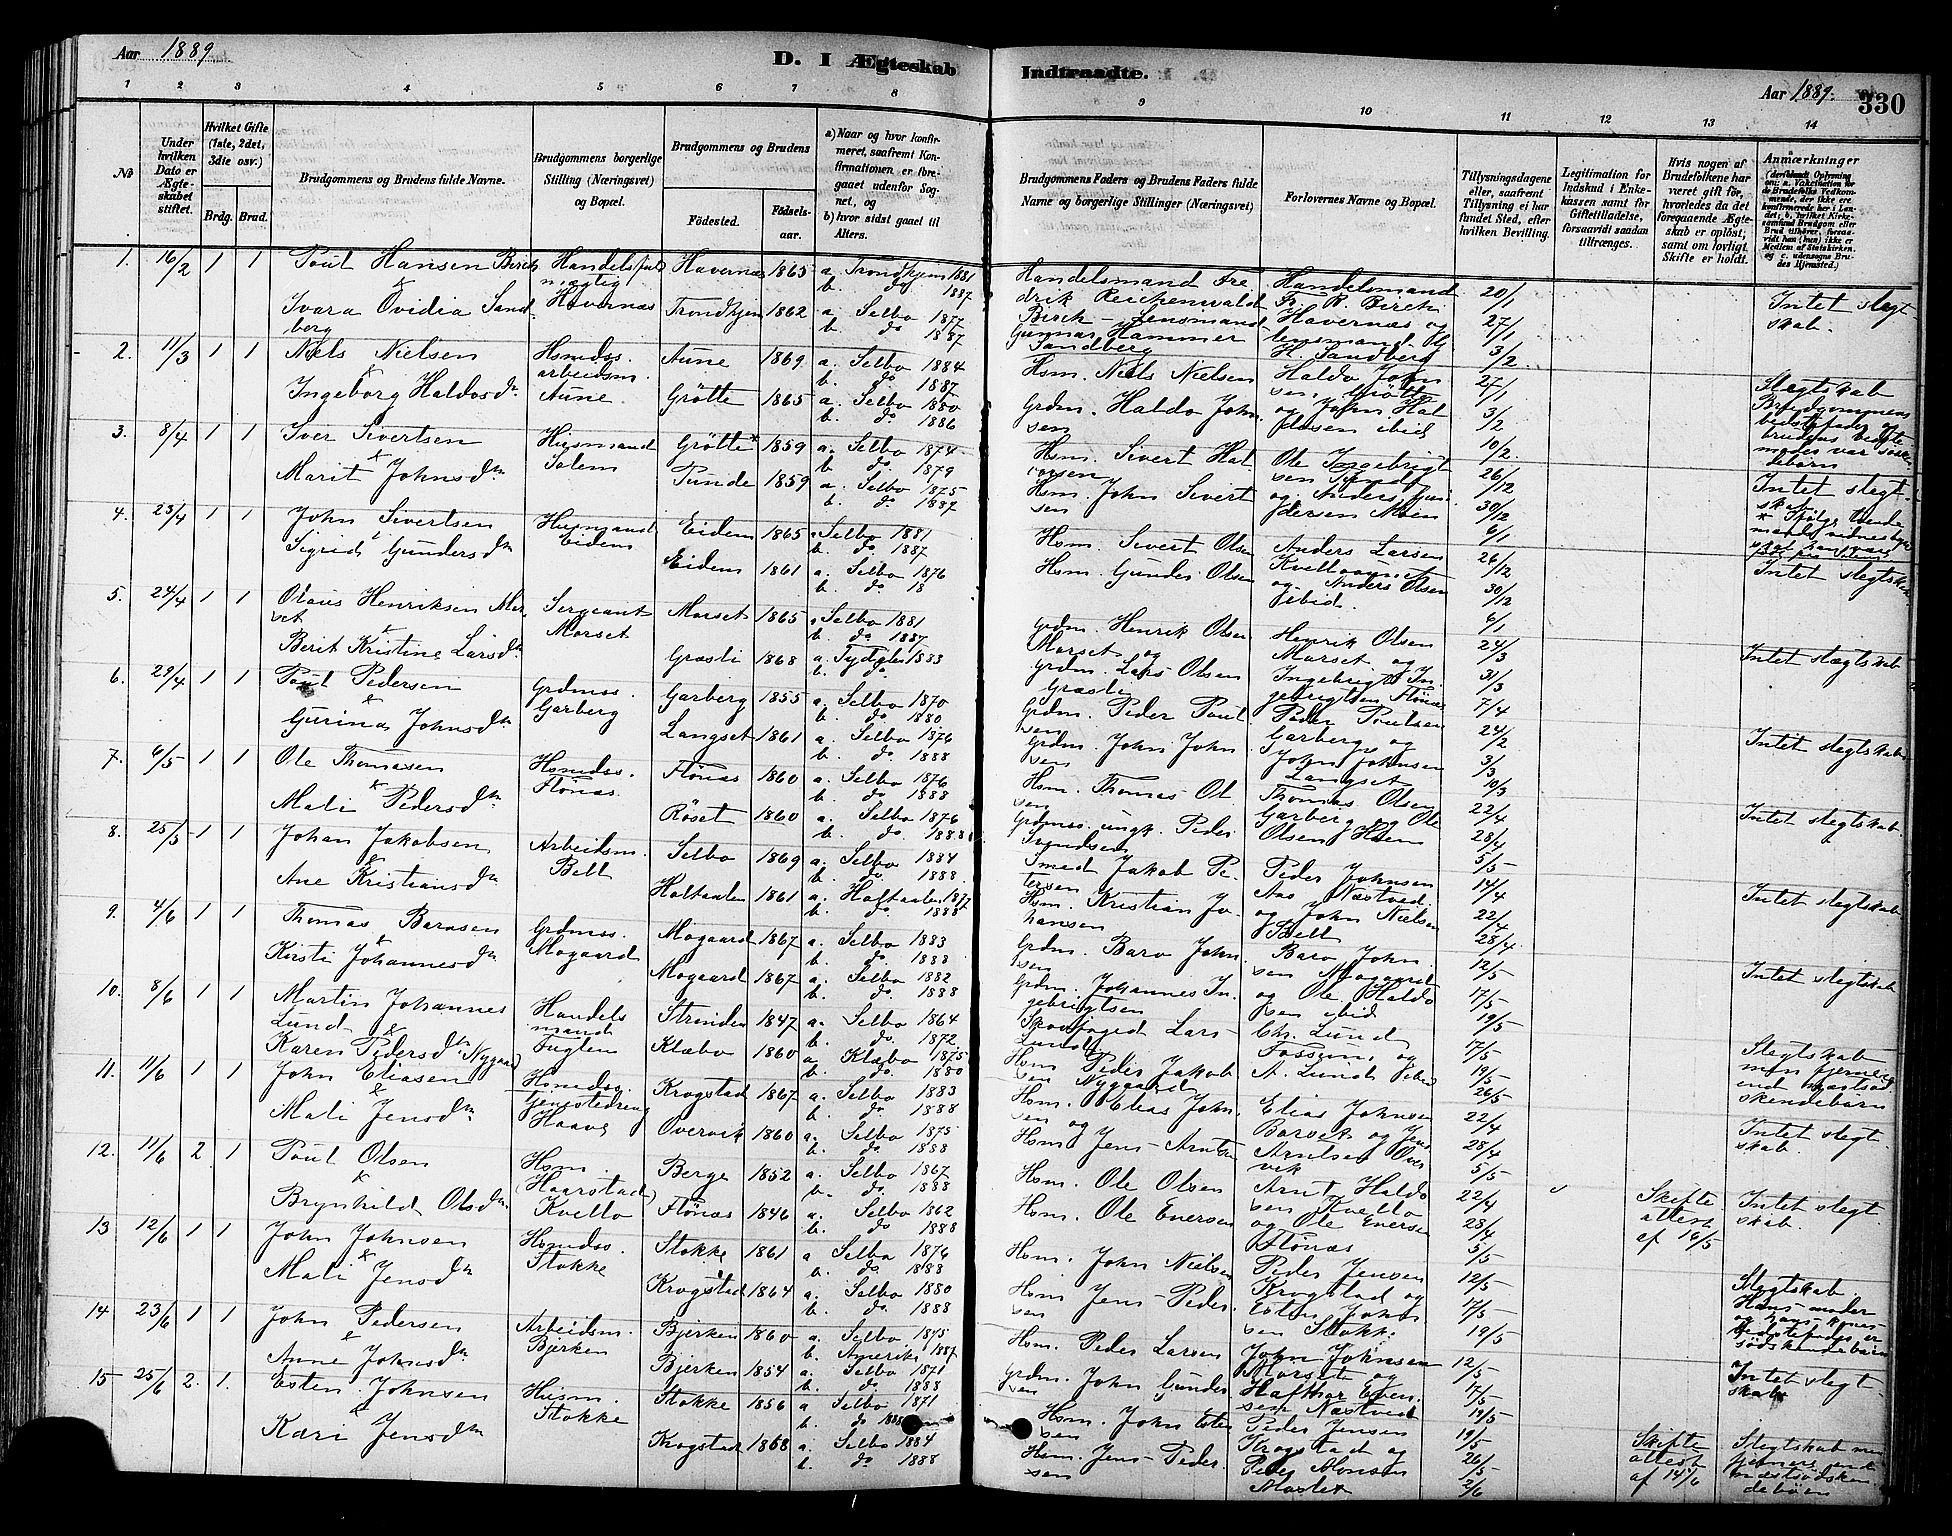 Aar 1889.
D. I Ægteskab Indtraadte.
Aar 1889. 330
1 2 3 4 5 6 7 8 9 10 11 12 13 14
No
Under hvilken Dato er Ægteskabet stiftet.
Hvilket Gifte (1ste, 2det, 3die osv.)
Brdg. Brud.
Brudgommens og Brudens fulde Navne.
Brudgommens borgerlige Stilling (Næringsvei) og Bopæl.
Brudgommens og Brudens
Fødested. Fødselsaar.
a) Naar og hvor konfirmeret, saafremt Konfirmationen er foregaaet udenfor Sognet, og
b) hvor sidst gaaet til Alters.
Brudgommens Faders og Brudens Faders fulde Navne og borgerlige Stillinger (Næringsvei)
Forlovernes Navne og Bopæl.
Tillysningsdagene eller, saafremt Tillysning ei har fundet Sted, efter hvilken Bevilling.
Legitimation for Indskud i Enkekassen samt for Giftetilladelse, forsaavidt saadan tiltrænges.
Hvis nogen af Brudefolkene har været gift før, hvorledes da det foregaaende Ægteskab er opløst, samt om lovligt Skifte er holdt.
Anmærkninger
1. 16/2 1 1 Poul Hansen Birch & Ivara Ovidia Sandberg
Handelsfuldmægtig Havernæs
Havernæs 1865 a. Trondhjem 1881 b. do 1887
Trondhjem 1862 a. Selbo 1877 b. do 1887
Handelsmand Fredrik Reichenwald Birch - Lensmand Gunnar Hammer Sandberg
Handelsmand Fr. R. Birch Havernæs og lensmand G. H. Sandberg
20/1 27/1 3/2
Intet slegtskab.
2. 11/3 1 1 Niels Nielsen & Ingeborg Haldosdr
Hsmdss. arbeidsm. Aune
Aune 1869 a. Selbo 1884 b. do 1887
Grötte 1865 a. Selbo 1880 b. do 1886
Hsm. Niels Nielsen
Grdm. Haldo Johnsen
Haldo Johnsen, Grötte og John Haldosen ibid
27/1 3/2 10/2.
Slegtskab Brudgommens bedstefader og brudens bedstemoder var søskendebarn
3. 8/4 1 1 Iver Sivertsen & Marit Johnsdr
Husmand Solem
Grötte* 1859 a. Selbo 1874 b. do. 1879
Tunde 1859 a. Selbo 1875 b. do. 1887
Hsm. Sivert Halvorsen
Hsm. John Sivertsen
Ole Ingebrigtsen
26/12 30/12 6/1
Intet slegtskab.
4. 23/4 1 1 John Sivertsen & Sigrid Gundersdr
Husmand Eidem
Eidem 1865 a. Selbo 1881 b. do. 1887
Eidem 1861 a. Selbo 1876 b. do 18
Hsm. Sivert Olsen
Hsm. Gunder Olsen
Anders Larsen Kvelloaune og Anders Olsen ibid.
26/12 30/12 6/1
Intet slegtskab.
5. 24/4 1 1 Olaus Henriksen Morset & Berit Kristine Larsdr
Sergeant Morset
Morset 1865 a. Selbo 1881 b. do 1887
Græsli 1868 a. Tydalen 1883
Grdm. Henrik Olsen Morset og Grdm. Lars Olsen Græsli
Henrik Olsen Morset og Ingebrigt Ingebrigtsen Flönæs
24/3 31/3 7/4
Intet slegtskab
6. 29/4 1 1 Poul Pedersen & Gurina Johnsdr
Grdmss. Garberg
Garberg 1855 a. Selbo 1870 b. do 1880
Langset 1861 a. Selbo 1876 b. do 1888
Grdm. Peder Poulsen
Grdm. John Johnsen
Peder Poulsen Garberg og John Johnsen Langset
24/2 3/3 10/3
Intet slegtskab
7. 6/5 1 1 Ole Thomasen & Mali Pedersdr
Hsmdss. Flönæs
Flönæs 1860 a. Selbo 1876 b. do 1888
Röset 1860 a. Selbo 1876 b. do. 1888
Hsm. Thomas Olsen
Grdmss. ungk. Peder Svendsen
Thomas Olsen Garberg og Ole Olsen Hoem
22/4 28/4 5/5
Intet slegtskab
8. 25/5 1 1 Johan Jakobsen & Ane Kristiansdr
Arbeidsm. Bell
Selbo 1869 a. Selbo 1884 b. do. 1888
Holtaalen 1861 a. Holtaalen 1877 b. do 1888
Smed Jakob Petersen
Hsm. Kristian Johansen
Peder Johnsen Aas Næstved. og John Nielsen Bell
14/4 22/4 28/4
Intet slegtskab
9. 4/6 1 1 Thomas Barosen & Kirsti Johannesdr
Grdmss. Mogaard
Mogaard 1867 a. Selbo 1883 b. do 1888
Mogaard 1867 a. Selbo 1882 b. do 1888
Grdm. Baro Johnsen
Grdm. Johannes Ingebrigtsen
Baro Johnsen Mogaard og Ole Haldosen ibid
12/5 17/5 19/5
Intet slegtskab
10. 8/6 1 1 Martin Johannes Lund & Karen Pedersdr (Nygaard)
Handelsmand Fuglem
Strinden 1847 a. Selbo 1864 b. do. 1872
Klæbo 1860 a. Klæbo 1875 b. do. 1880
Skovfoged Lars Lund
Hsm Peder Jakobsen Nygaard
Chr. Lund Fossum, og A. Lund ibid
17/5 19/5 26/5
Slegtskab men fjernere end næstsødskendebørn
11. 11/6 1 1 John Eliasen & Mali Jensdr
Hsmdss. tjenestedreng Haave
Krogstad 1867 a. Selbo 1883 b. do. 1888
Overvik 1860 a. Selbo 1875 b. do 1888
Hsm. Elias Johnsen og
Hsm Jens Arntsen
Elias Johnsen Barvik og Jens Arntsen Overvik
22/4 28/4 5/5
Intet slegtskab.
12. 11/6 2 1 Poul Olsen & Brynhild Olsdr
Hsm. (Haarstad) Kvello
Berge 1852 a. Selbo 1867 b. do. 1888
Flönæs 1846 a. Selbo 1862 b. do 1888
Hsm. Ole Olsen
Hsm. Ole Enersen
Arnt Haldosen Kvello og Ole Enersen Flönæs
22/4 28/4 5/5
Skifteattest af 16/5
Intet slegtskab.
13 12/6 1 1 John Johnsen & Mali Jensdr
Hsmdss. Stokke
Stokke 1861 a Selbo 1876 b. do 1888
Krogstad 1864 a. Selbo 1880 b. do 1888
Hsm. John Nielsen
Hsm Jens Pedersen
Peder Jensen Krogstad og Esten Johnsen Stokke
12/5 17/5 19/5
14 23/6 1 1 John Pedersen & Anne Johnsdr
Arbeidsm. Bjerken
Bjerken 1860 a. Selbo 1875 b. Amerika 1887
Bjerken 1854 a. Selbo 1871 b. do 1888
Hsm. Peder Larsen
Grdm. John Gundersen
John Johnsen Morset og Hafthor Evensen Næstved
12/5 17/5 19/5
Intet slegtskab
15 25/6 2. 1. Esten Johnsen & Kari Jensdr
Husm. Stokke
Stokke 1856 a Selbo 1871 b. do 1888
Krogstad 1868 a. Selbo 1884 b. do 1888
Hsm. John Estensen
Hsm. Jens Pedersen
Peder Jensen Krogstad og Peder Monsen Moslet
19/5 26/5 2/6
Skifteattest af 14/6
Slegtskab men fjernere end næstsødskendebørn